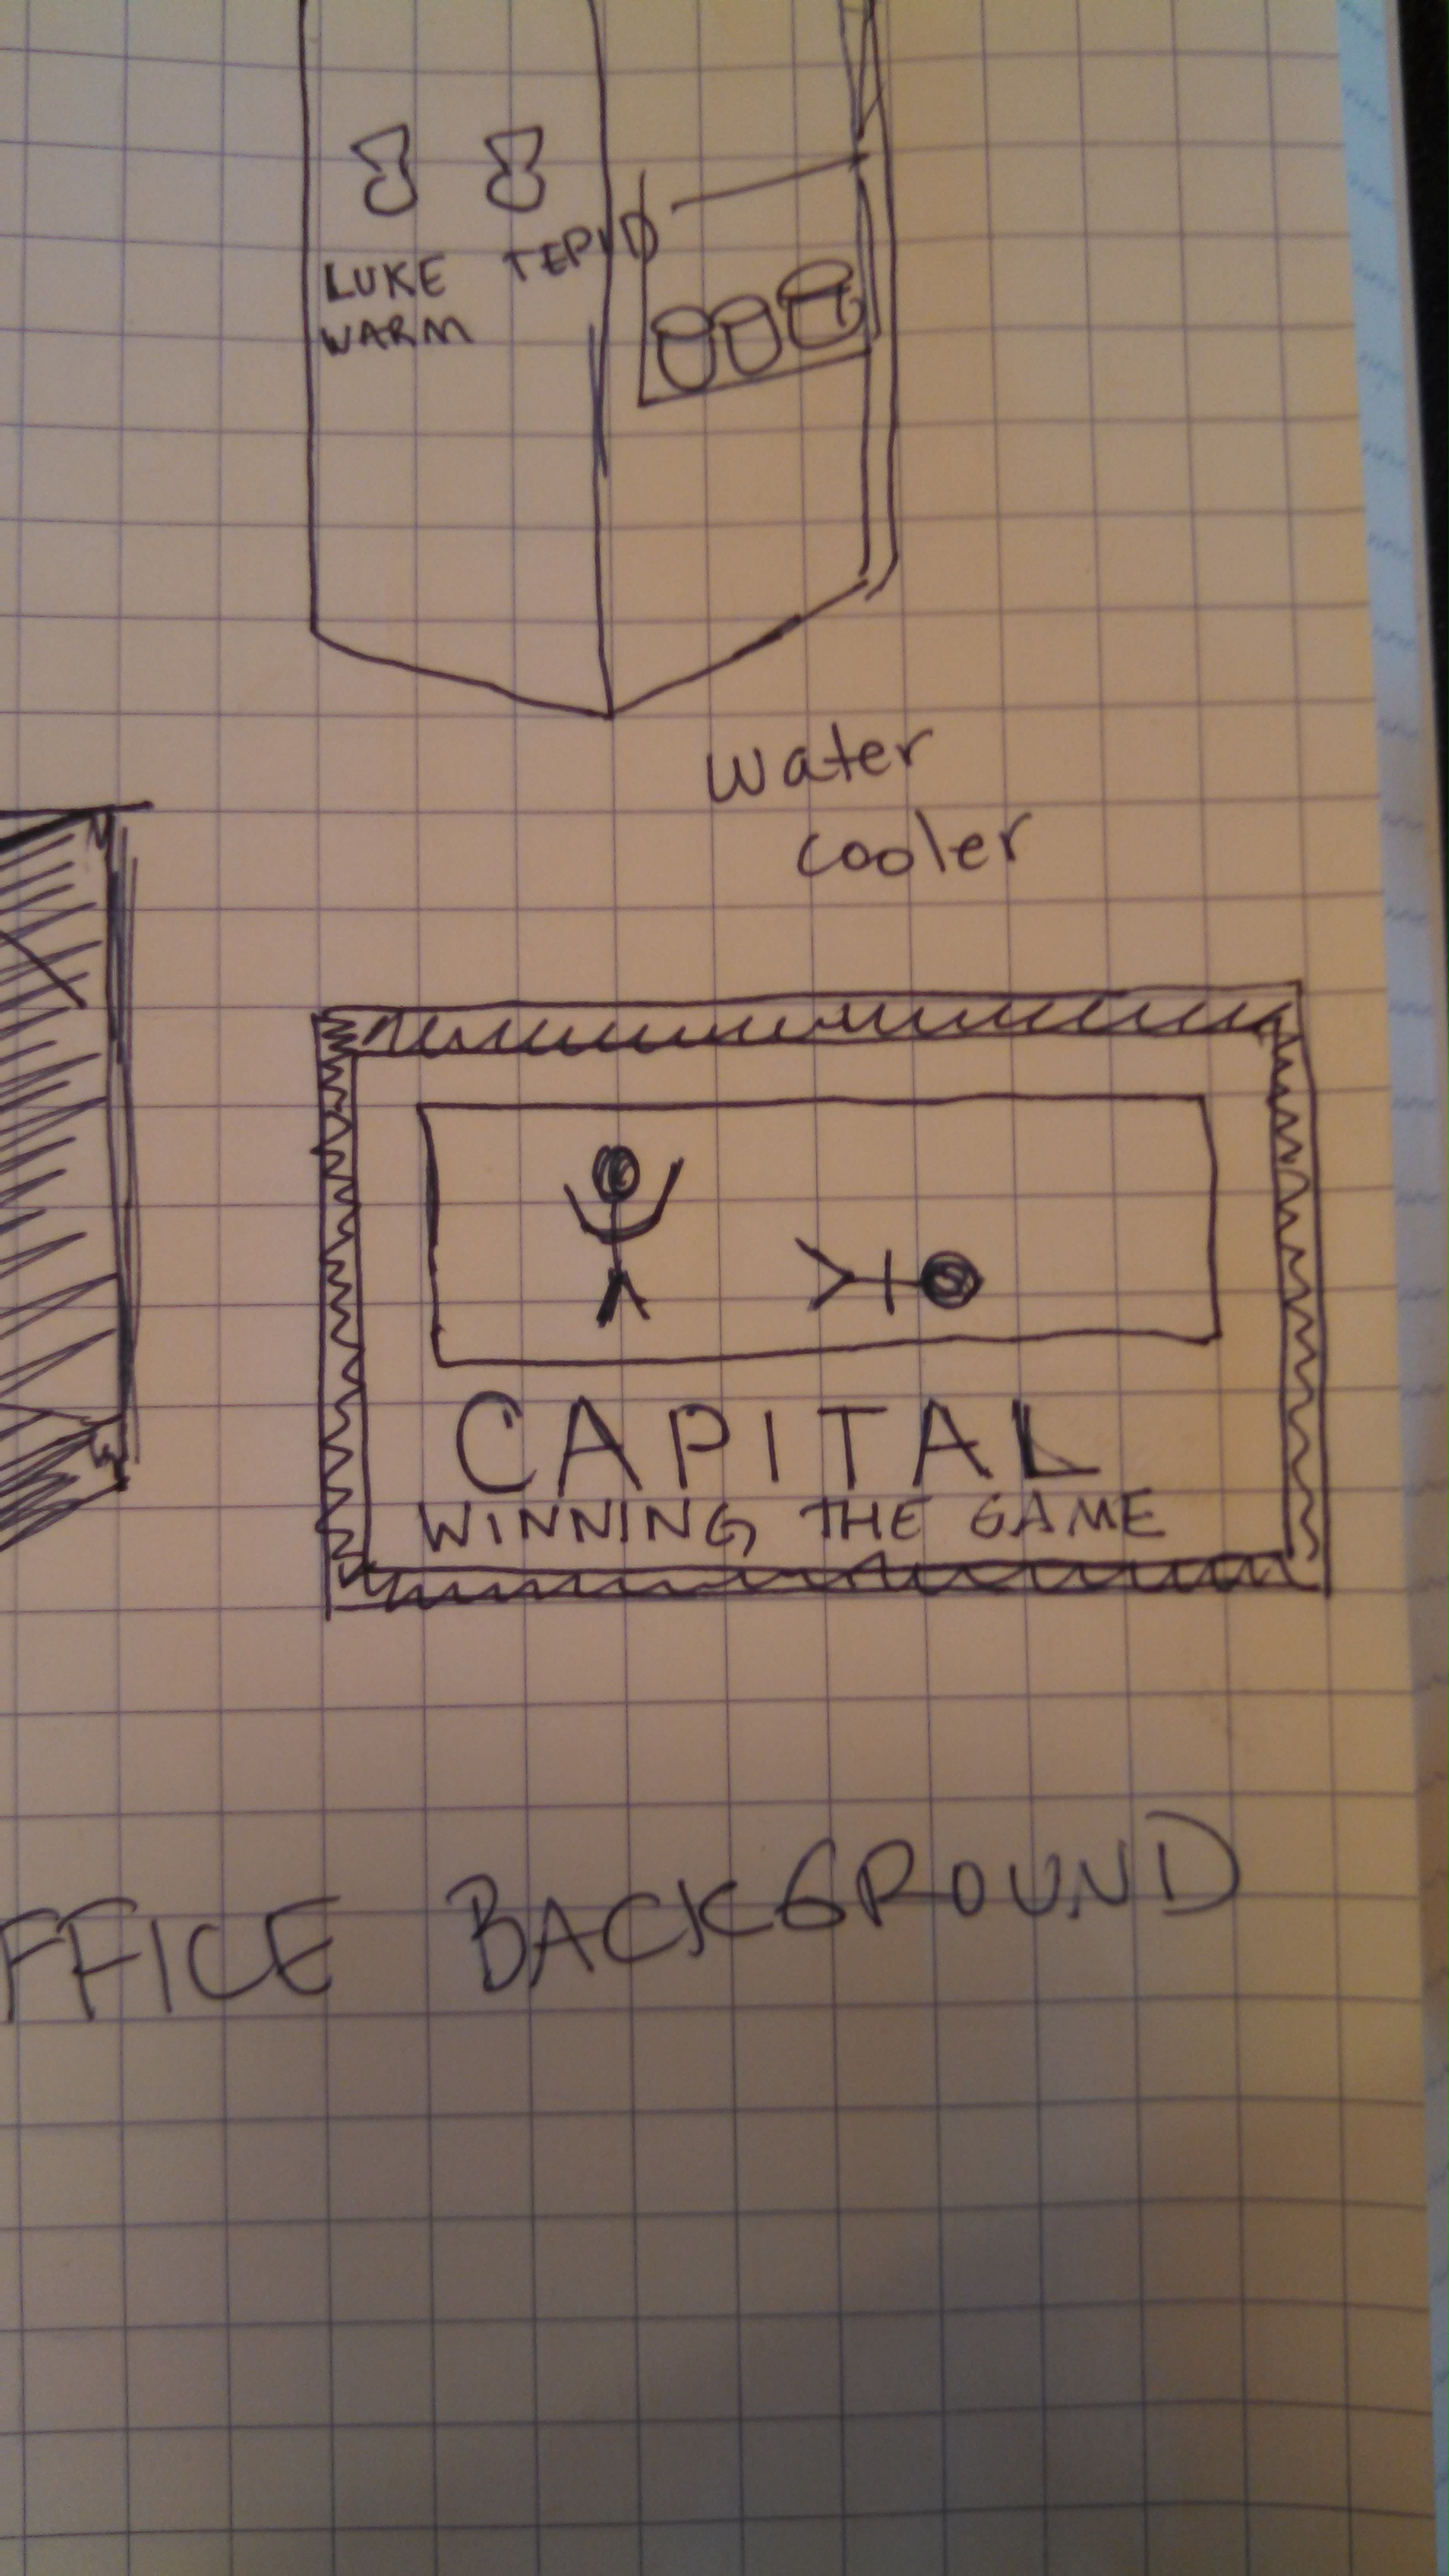 LUKE TEPID
WARM
water
cooler
CAPITAL
WINNING THE GAME
FFICE BACKGROUND